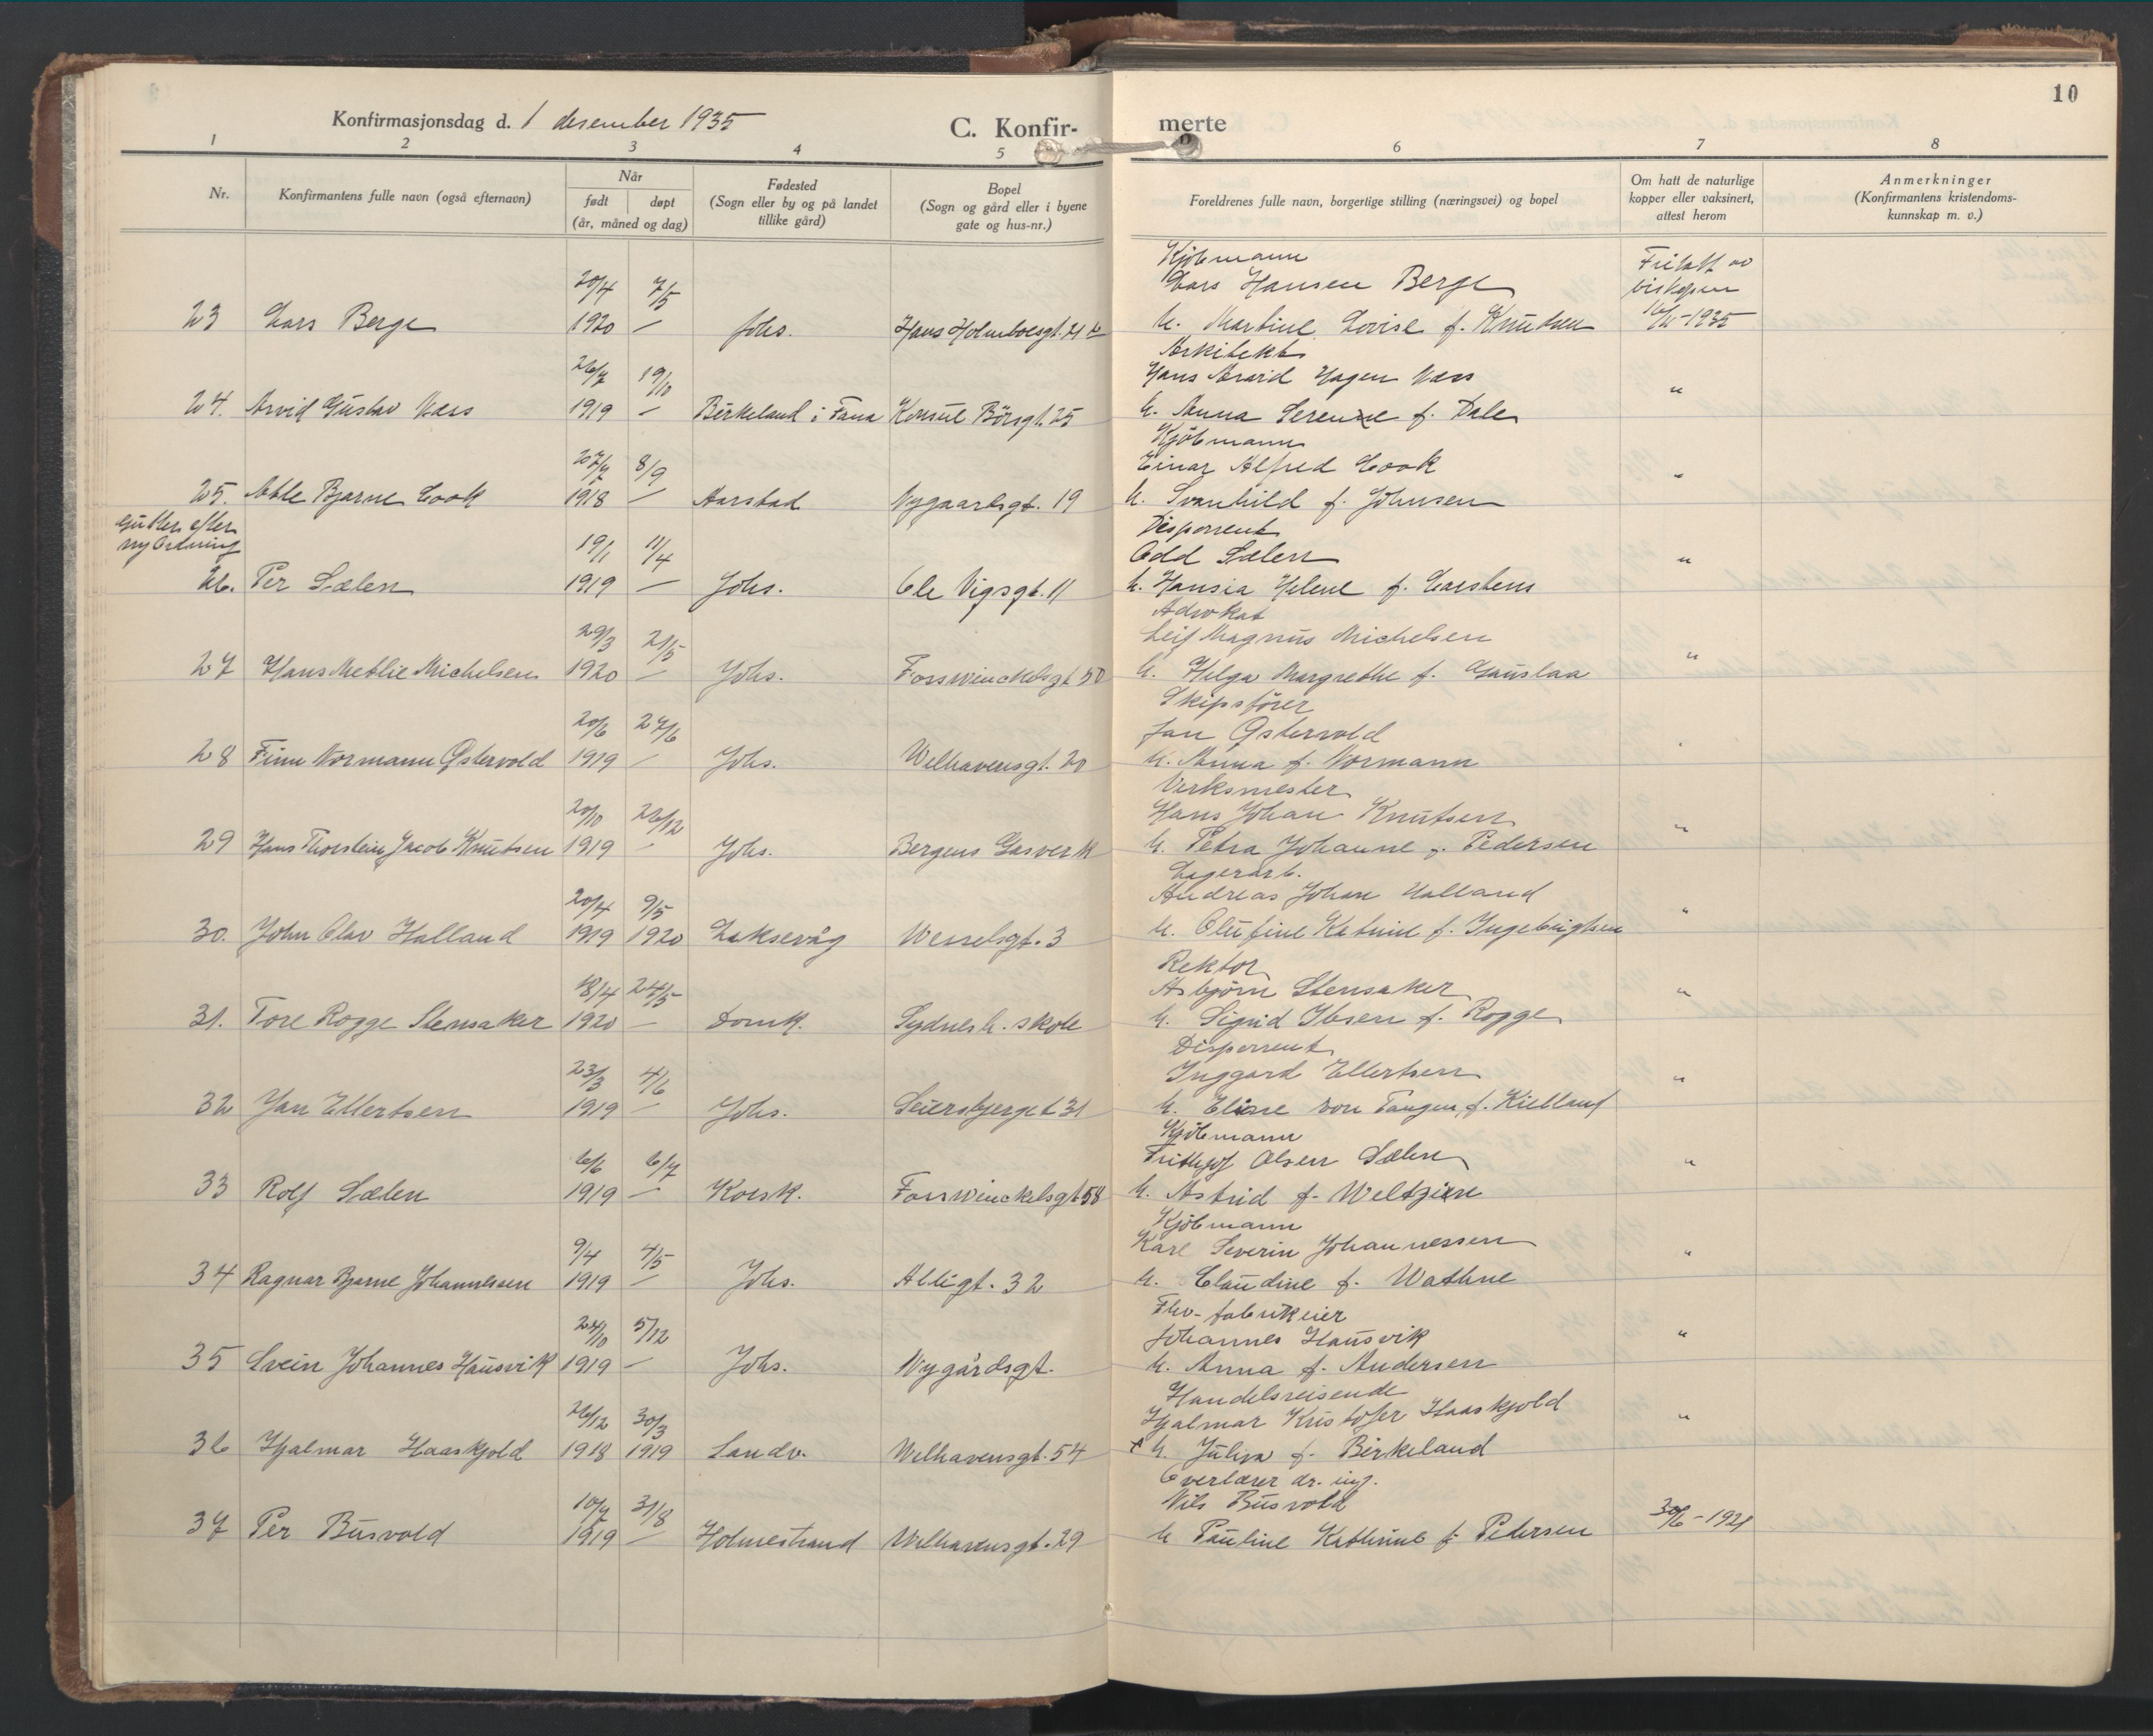 10
Konfirmasjonsdag d. 1 desember 1935
C. Konfir- merte
1 2 3 4 5 6 7 8
Nr. Konfirmantens fulle navn (også efternavn) Når født døpt (år, måned og dag) Fødested (Sogn eller by og på landet tillike gård) Bopel (Sogn og gård eller i byene gate og hus-nr.) Foreldrenes fulle navn, borgerlige stilling (næringsvei) og bopel Om hatt de naturlige kopper eller vaksinert, attest herom Anmerkninger (Konfirmantens kristendoms-kunnskap m. v.)
Kjöbmann
20/4 7/5 Lars Hansen Berge Fritatt av biskopen
23 Lars Berge 1920 — Johs. Hans Holmboesgt. 21 h. Martine Lovise f. Knutsen 1935
Arkitekt
26/7 19/10 Hans Arvid Hagen Næss
24. Arvid Gustav Næss 1919 — Birkeland i Fana Konsul Börsgt. 25 h. Anna Serene f. Dale "
Kjöbmann
8/9 Einar Alfred Cook
25. Atle Bjarne Cook 1918 — Aarstad Nygaardsgt. 19 h. Svanhild f. Johnsen "
Gutter efter ny Ordning
Disponent
19/1 11/4 Odd Sælen
26. Per Sælen 1919 — Johs. Ole Vigsgt. 11 h. Hansia Helene f. Carstens "
Advokat
29/3 2/5 Leif Magnus Michelsen
27 Hans Metlie Michelsen 1920 — Johs. Fosswinckelsgt 50 h. Helga Margrethe f. Gauslaa "
Skipsförer
20/6 27/6 Jan Östervold
28 Finn Normann Östervold 1919 — Johs. Welhavensgt. 20 h. Anna f. Normann "
Verksmester
20/10 26/12 Hans Johan Knutsen
29 Hans Thorstein Jacob Knutsen 1919 — Johs. Bergens Gasverk h. Petra Johanne f. Pedersen "
Lagerarb.
20/4 9/5 Andreas Johan Halland
30. John Olav Halland 1919 1920 Laksevåg Wesselsgt. 3 h. Olufine Katrine f. Ingebrigtsen "
Rektor
18/4 24/5 Asbjörn Stensaker
31. Tore Rogge Stensaker 1920 — Domk. Sydnesh. skole h. Sigrid Ibsen f. Rogge "
Disponent
23/3 4/6 Inggard Ellertsen
32 Jan Ellertsen 1919 — Johs. Seiersbjerget 31 h. Elise von Tangen f. Kielland "
Kjöbmann
6/6 6/7 Frithjof Olsen Sælen
33 Rolf Sælen 1919 — Korsk. Fosswinckelsgt 58 h. Astrid f. Weltzien "
Kjöbmann
9/4 4/5 Karl Severin Johannessen
34 Ragnar Bjarne Johannessen 1919 — Johs. Allégt. 32 h. Claudine f. Wathne "
Fhv. fabrikeier
24/10 5/12 Johannes Hausvik
35 Svein Johannes Hausvik 1919 — Johs. Nygårdsgt. h. Anna f. Andersen "
Handelsreisende
26/12 30/3 Hjalmar Kristofer Haaskjold
36 Hjalmar Haaskjold 1918 1919 Landv. Welhavensgt. 54 h. Julia f. Birkeland "
Overlærer dr. ing.
10/7 31/8 Nils Busvold
37 Per Busvold 1919 — Holmestrand Welhavensgt. 29 h Pauline Kathrine f. Pedersen 30/6 - 1921